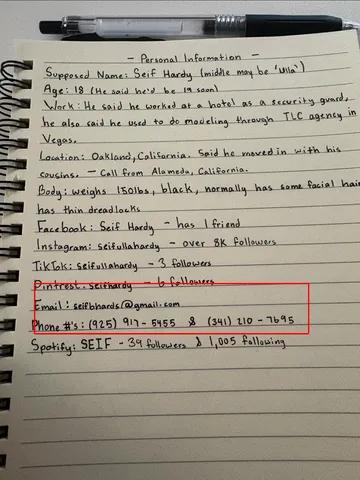 - Personal Information -
Supposed Name: Seif Hardy (middle may be 'Ulla')
Age: 18 (He said he'd be 19 soon)
Work: He said he worked at a hotel as a security guard,
he also said he used to do modeling through TLC agency in
Vegas.
Location: Oakland, California. Said he moved in with his
cousins. - Call from Alameda, California.
Body: weighs 150lbs, black, normally has some facial hair
has thin dreadlocks
Facebook: Seif Hardy - has 1 friend
Instagram: seifullahardy - over 8K followers
TikTok: seifullahardy - 3 followers
Pintrest: seifhardy - 6 followers
Email: seifbhards@gmail.com
Phone #'s: (925) 917-5455 & (341) 210-7695
Spotify: SEIF - 39 followers & 1,005 following